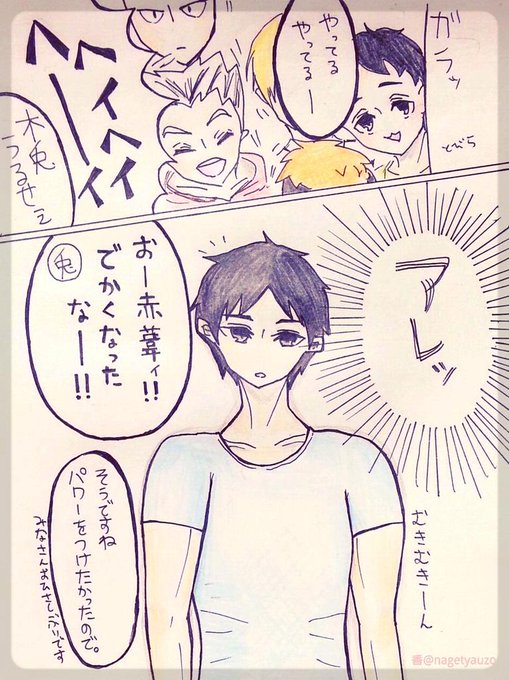 ガラッ
とびら
やってる
やってるー
ヘイヘイ
ヘーイ
木兎
うるせェ
アレッ
おー赤葦ィ!!
でかくなった
なー!!
兎
むきむきーん
そうですね
パワーをつけたかったので。
みなさんおひさしぶりです
香@nagetyauzo